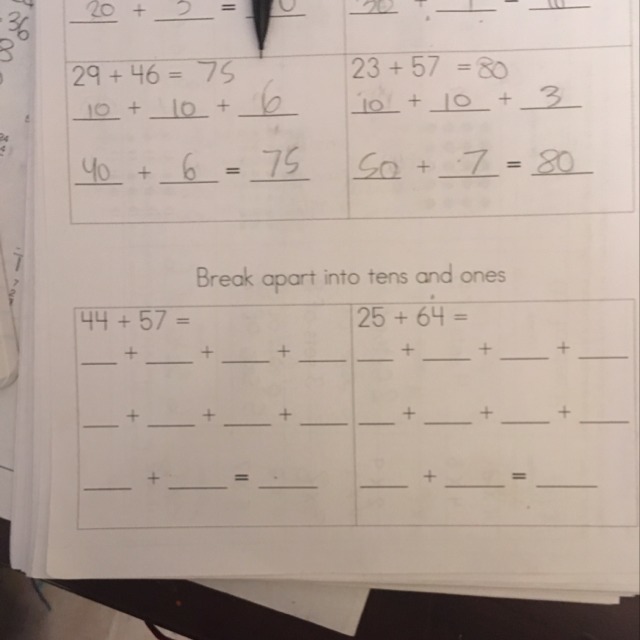 20 + 5 =
29 + 46 = 75
10 + 10 + 6
40 + 6 = 75
23 + 57 = 80
10 + 10 + 3
50 + 7 = 80
Break apart into tens and ones
44 + 57 =
___ + ___ + ___ + ___
___ + ___ + ___ + ___
___ + ___ = ___
25 + 64 =
___ + ___ + ___ + ___
___ + ___ + ___ + ___
___ + ___ = ___